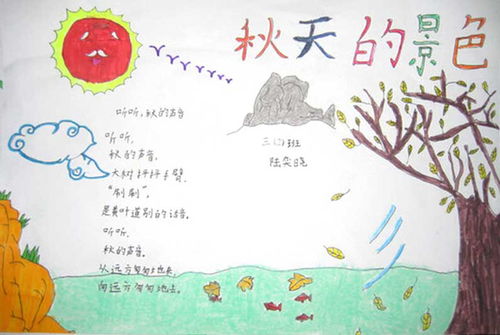 秋天的景色
三(1)班
陆奕晓
听听，秋的声音
听听，
秋的声音，
大树抖抖手臂，
“刷刷”，
是黄叶道别的话音。
听听，
秋的声音。
从远方匆匆地来，
向远方匆匆地去。